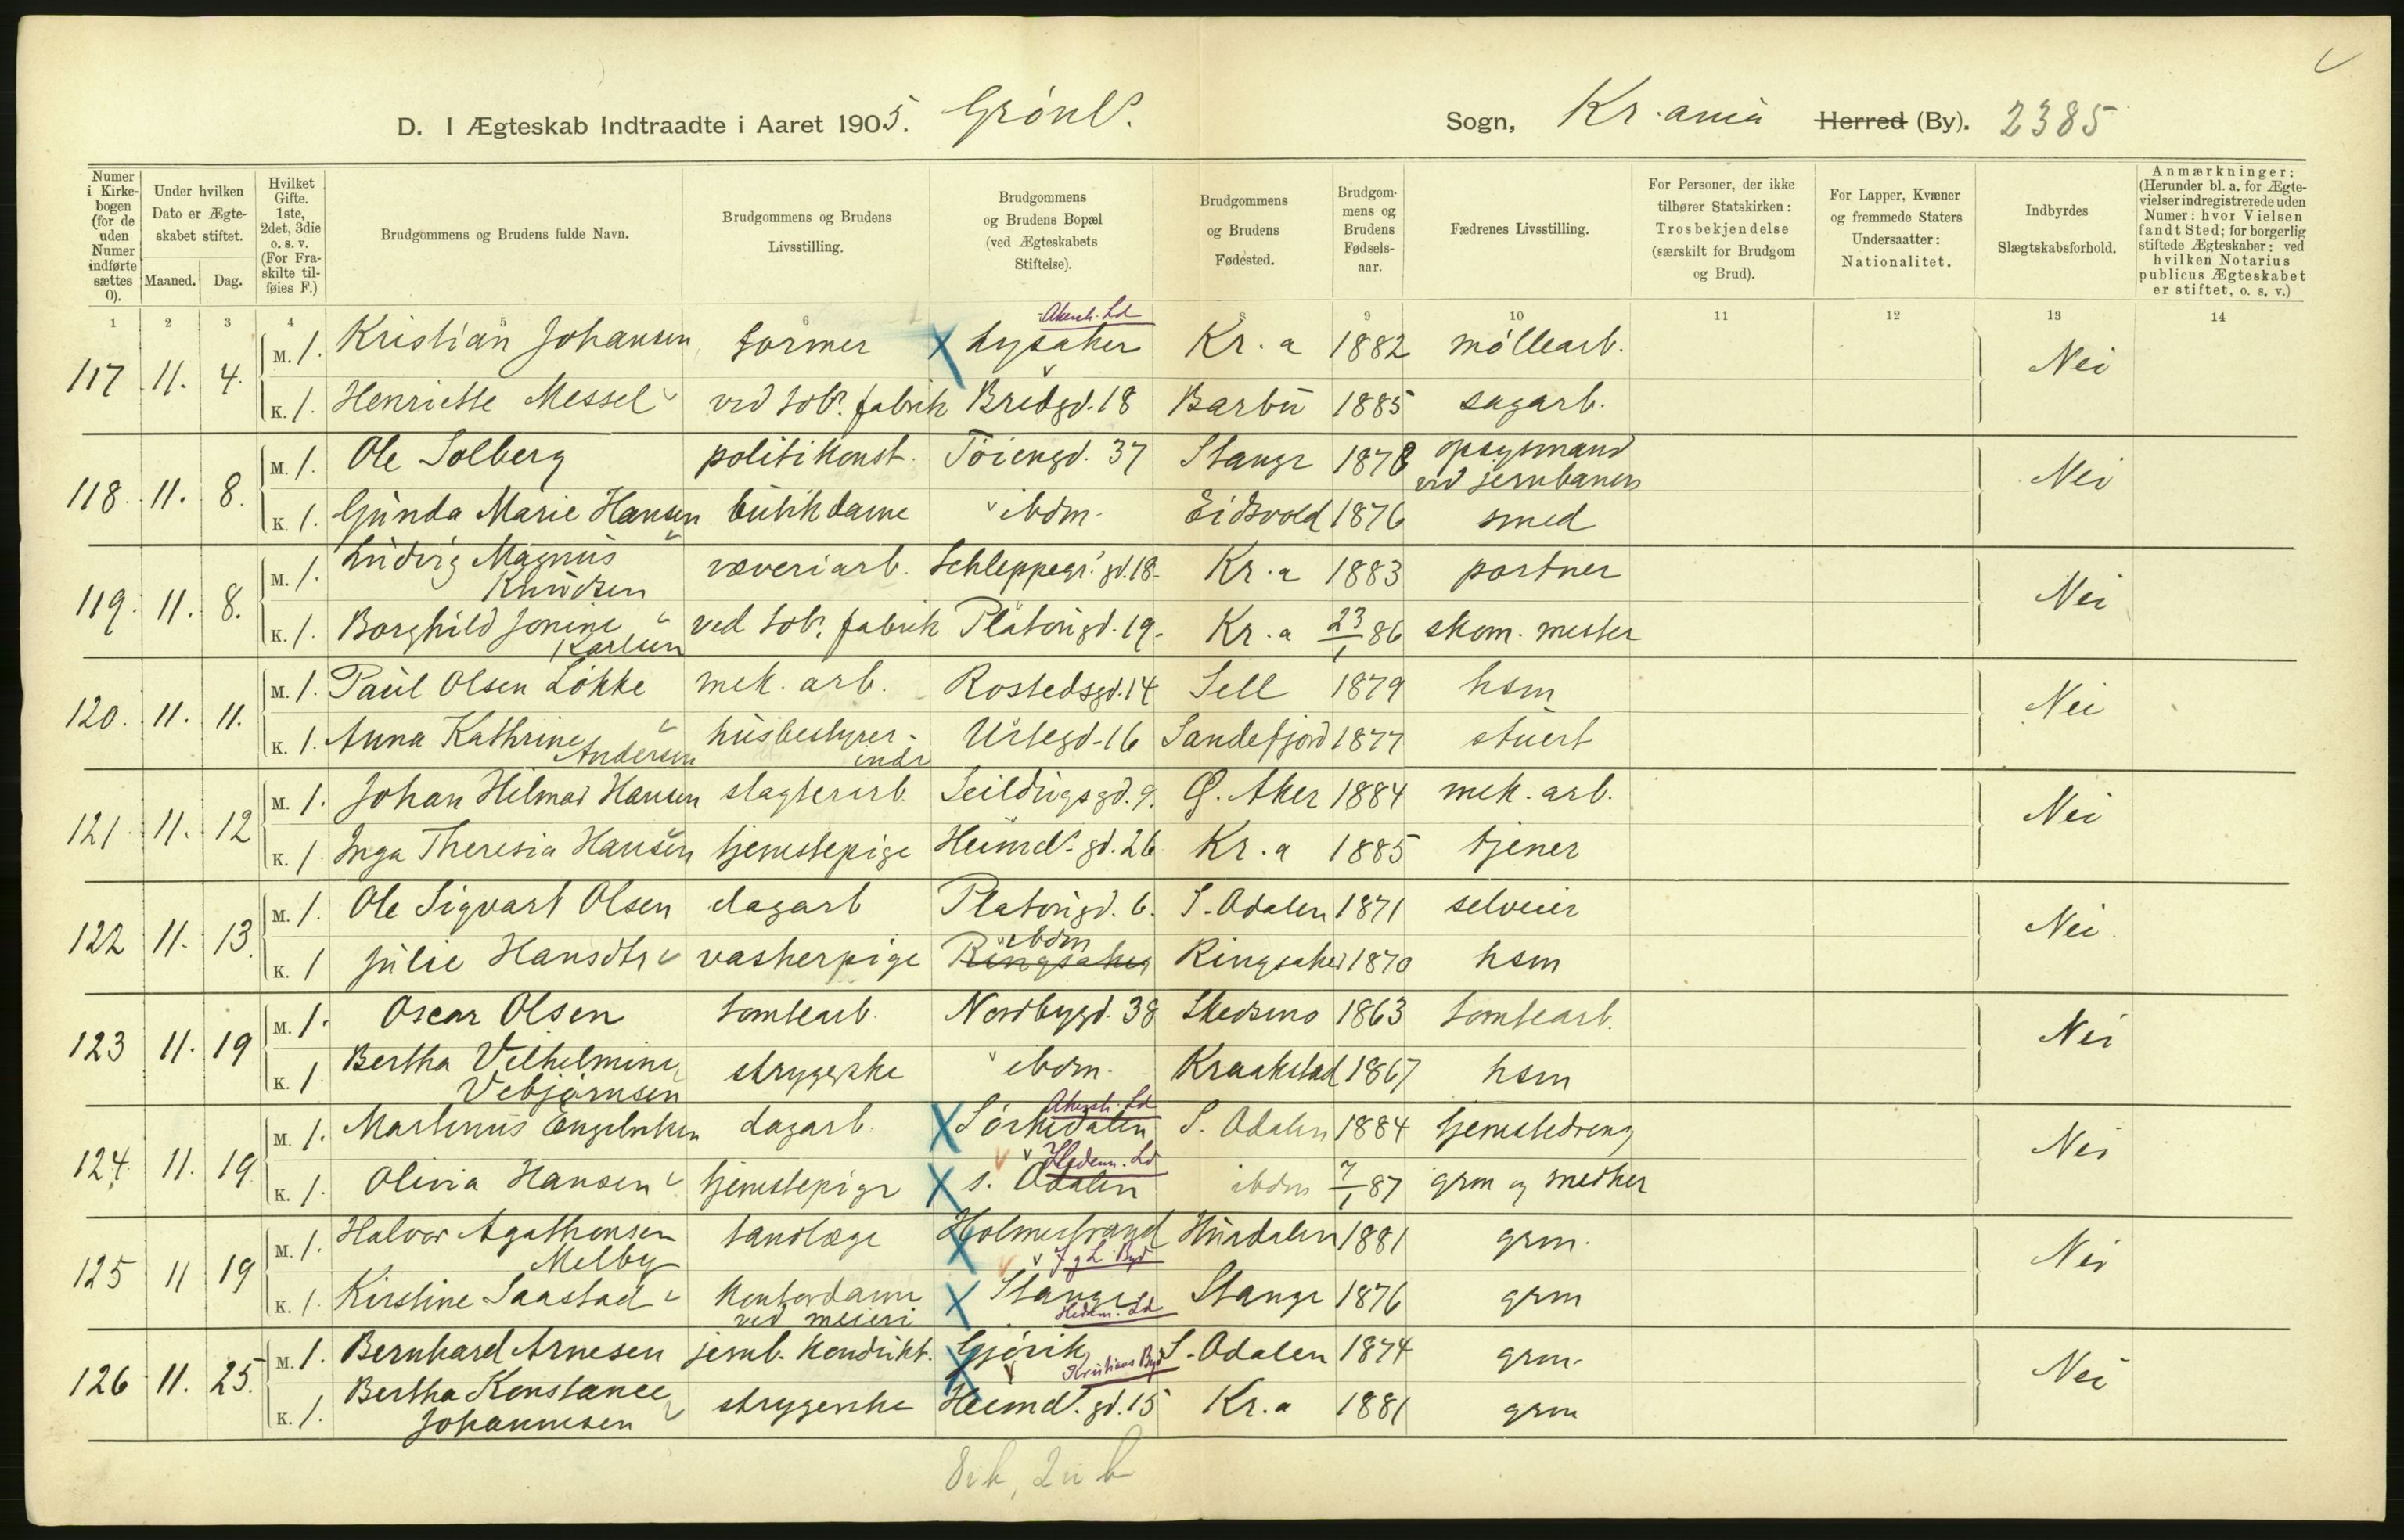 D. I Ægteskab Indtraadte i Aaret 1905. Grønl. Sogn, Kr.ania Herred (By). 2385
Numer i Kirkebogen (for de uden Numer indførte sættes 0).
Under hvilken Dato er Ægteskabet stiftet.
Maaned. Dag.
Hvilket Gifte. 1ste, 2det, 3die o. s. v. (For Fraskilte tilføies F.)
Brudgommens og Brudens fulde Navn.
Brudgommens og Brudens Livsstilling.
Brudgommens og Brudens Bopæl (ved Ægteskabets Stiftelse).
Brudgommens og Brudens Fødested.
Brudgommens og Brudens Fødselsaar.
Fædrenes Livsstilling.
For Personer, der ikke tilhører Statskirken: Trosbekjendelse (særskilt for Brudgom og Brud).
For Lapper, Kvæner og fremmede Staters Undersaatter: Nationalitet.
Indbyrdes Slægtskabsforhold.
Anmærkninger: (Herunder bl. a. for Ægtevielser indregistrerede uden Numer: hvor Vielsen fandt Sted; for borgerlig stiftede Ægteskaber: ved hvilken Notarius publicus Ægteskabet er stiftet, o. s. v.)
1 2 3 4 5 6 8 9 10 11 12 13 14
Akersh. Ld
117 11. 4. M. 1. Kristian Johansen former Lysaker Kr.a 1882 møllearb. Nei
K. 1. Henriette Messel ved tob. fabrik Bredgd. 18 Barbu 1885 sagarb.
118. 11. 8. M. 1. Ole Solberg politikonst. Tøiengd. 37 Stange 1878 opsynsmand ved jernbanen Nei
K. 1. Gunda Marie Hansen butikdame ibdm. Eidsvold 1876 smed
119. 11. 8. M. 1. Ludvig Magnus Knudsen væveriarb. Schleppegr. gd. 18. Kr.a 1883 portner Nei
K. 1. Borghild Jonine Karlsen ved tob. fabrik Platougd. 19. Kr.a 23/1 86 skom. mester
120. 11. 11. M. 1. Paul Olsen Løkke mek. arb. Rostedsgd. 14 Sell 1879 hsm Nei
K. 1. Anna Kathrine Andersen husbestyrerinde Urtegd. 16 Sandefjord 1877 stuert
121. 11. 12 M. 1. Johan Hilmar Hansen slagterarb. Seildugsgd. 9. Ø. Aker 1884 mek. arb. Nei
K. 1. Inga Theresia Hansen tjenestepige Heimdl. gd. 26 Kr.a 1885 tjener
122 11. 13. M. 1. Ole Sigvart Olsen dagarb Platougd. 6. S. Odalen 1871 selveier Nei
K. 1 Julie Hansdtr vaskerpige Ringsaker ibdm Ringsaker 1870 hsm
123 11. 19 M. 1. Oscar Olsen tomtearb. Nordbygd. 38 Skedsmo 1863 tomtearb. Nei
K. 1 Bertha Vilhelmine Vebjørnsen strygerske ibdm. Kraakstad 1867 hsm
Akersh. Ld
124. 11. 19. M. 1. Martinus Engebretsen dagarb. Sørkedalen S. Odalen 1884 tjenestedreng Nei
Hedem. Ld
K. 1. Olivia Hansen tjenestepige S. Odalen ibdm 7/1 87 grm og snedker
125 11 19 M. 1. Halvor Agathonsen Melby tandlæge Holmestrand Hurdalen 1881 grm. Nei
J. g L. Byd
K. 1. Kirstine Saastad kontordame ved meieri Stange Stange 1876 grm
Hedem. Ld.
126 11. 25. M. 1. Bernhard Arnesen jernb. kondukt. Gjøvik S. Odalen 1874 grm. Nei
Kristians Byd
K. 1. Bertha Konstance Johannesen strygerske Heimdl. gd. 15 Kr.a 1881 grm